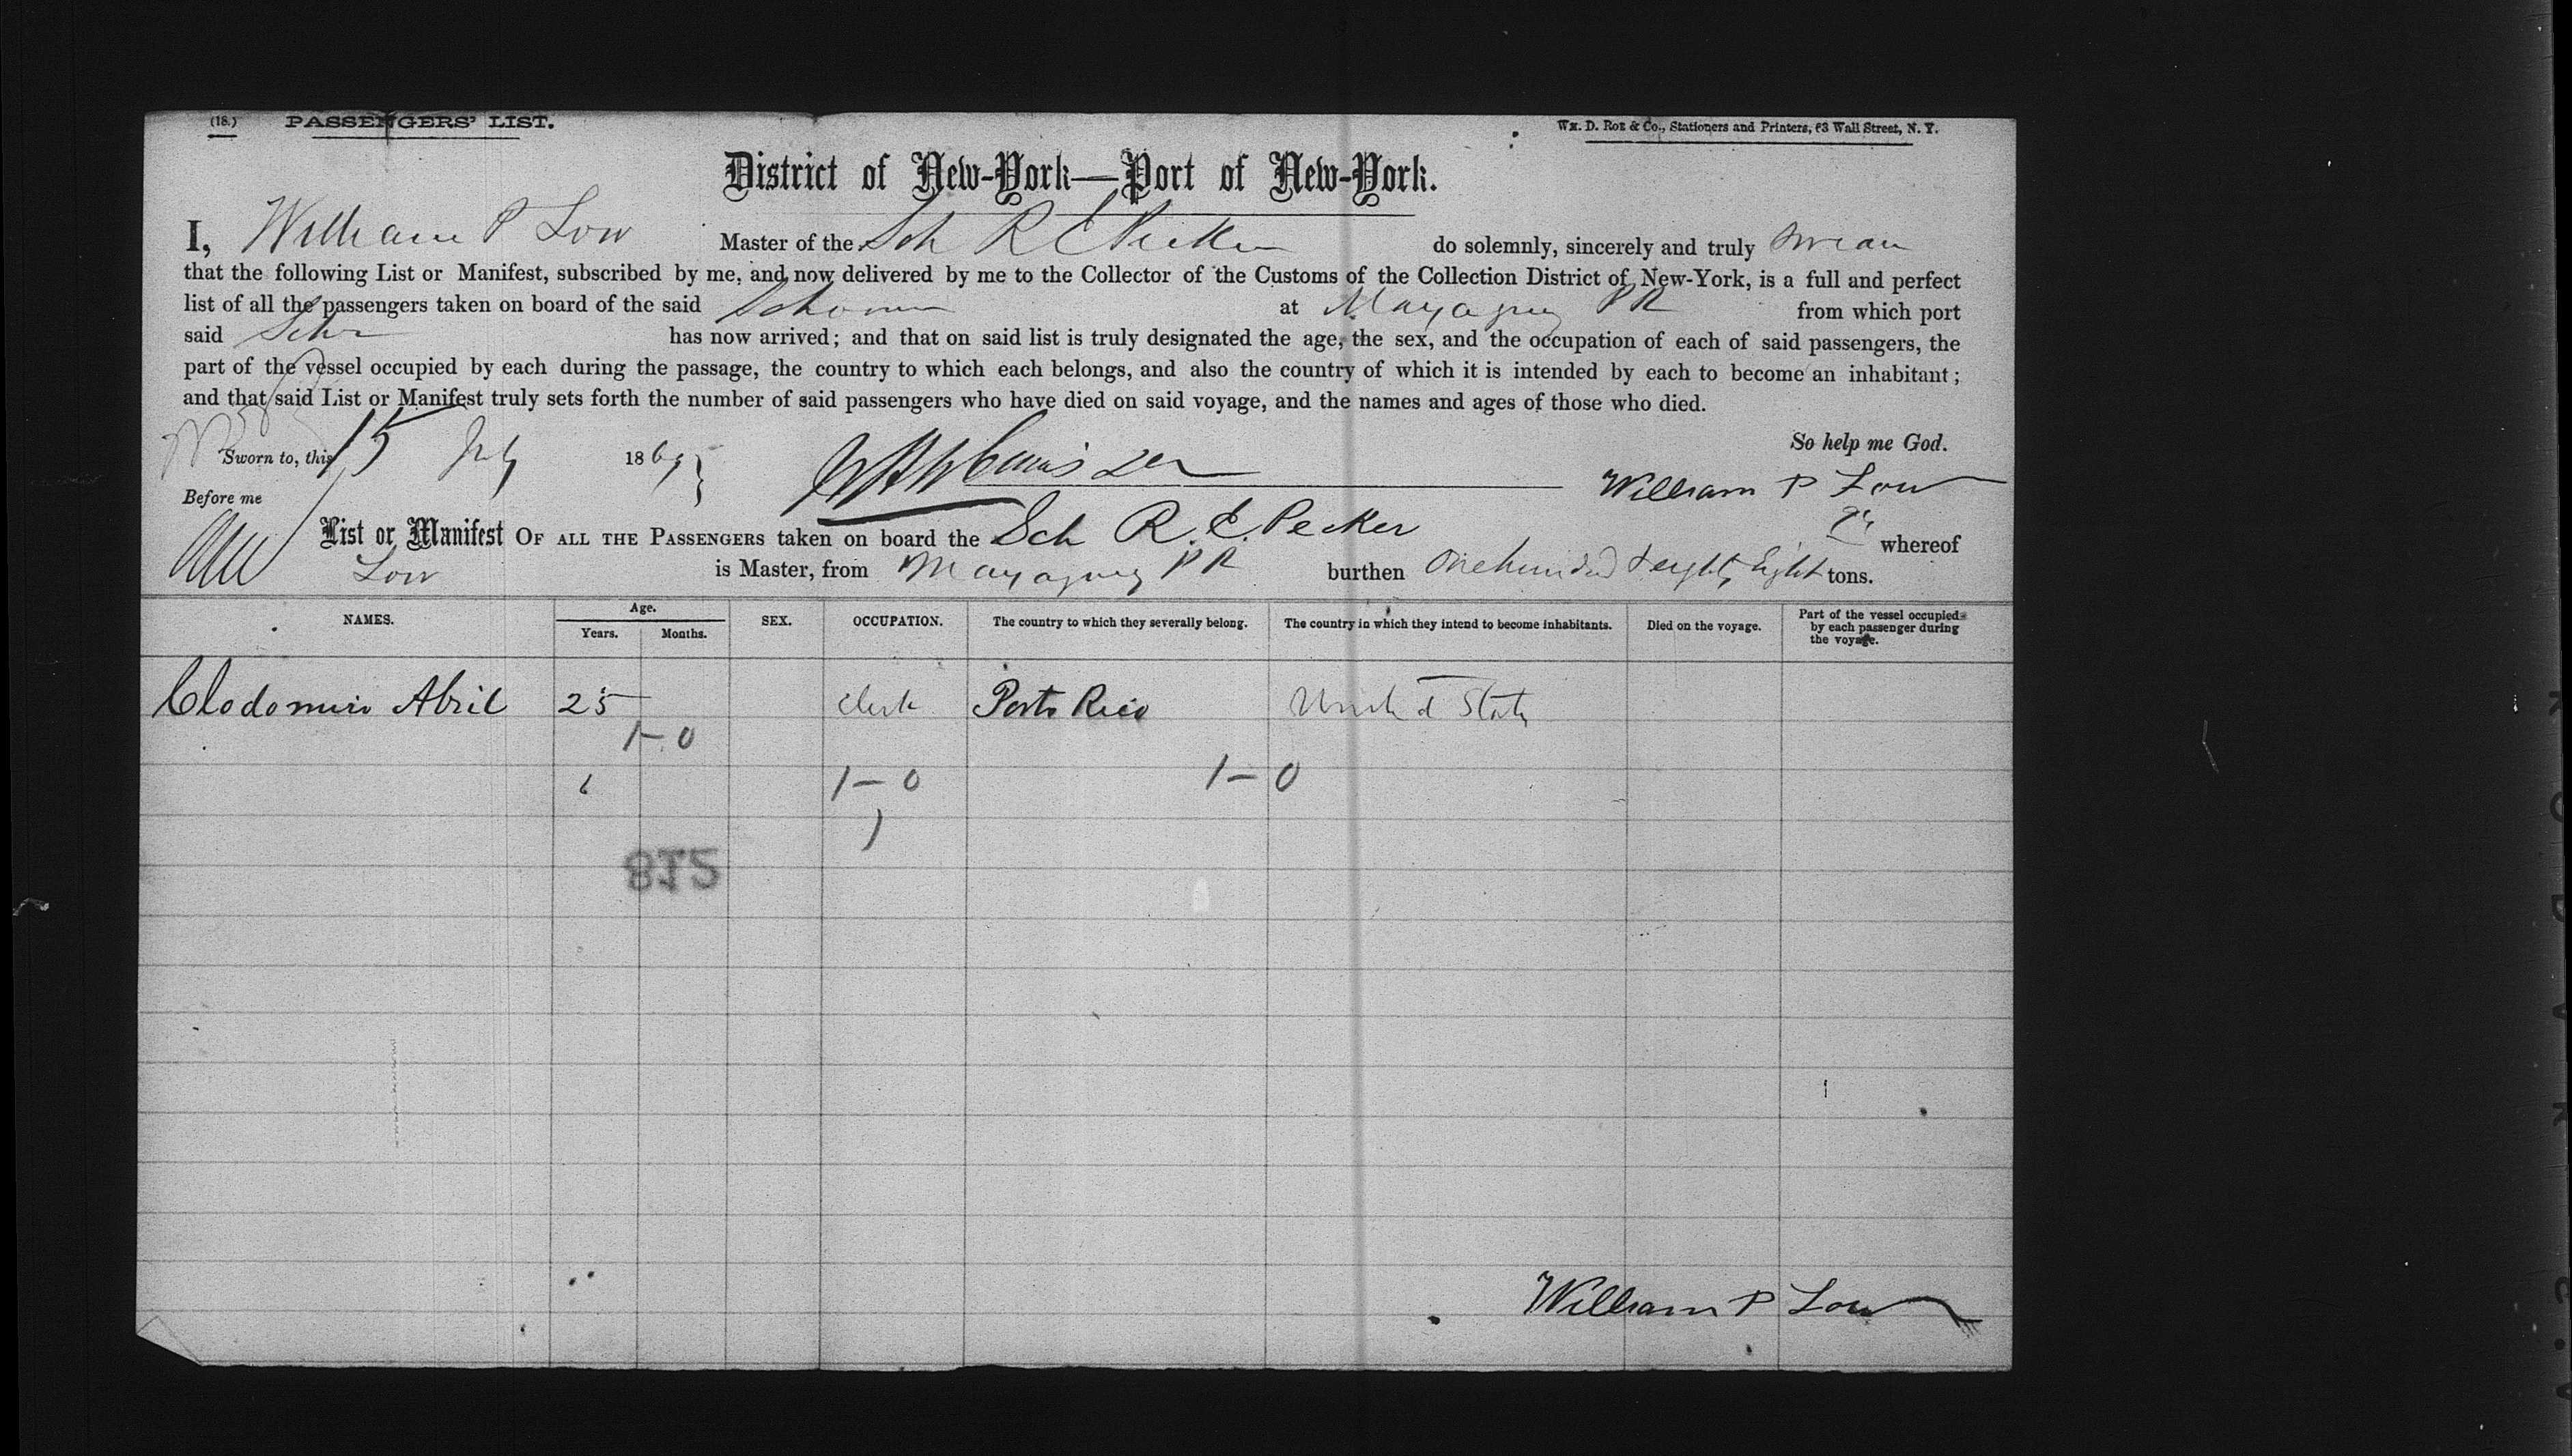 (18.) PASSENGERS' LIST.
Wm. D. Roe & Co., Stationers and Printers, 63 Wall Street, N. Y.
District of New-York—Port of New-York.
I, William P Low Master of the Sch R E Pecker do solemnly, sincerely and truly swear
that the following List or Manifest, subscribed by me, and now delivered by me to the Collector of the Customs of the Collection District of New-York, is a full and perfect
list of all the passengers taken on board of the said at Mayaguez PR from which port
said Schr has now arrived; and that on said list is truly designated the age, the sex, and the occupation of each of said passengers, the
part of the vessel occupied by each during the passage, the country to which each belongs, and also the country of which it is intended by each to become an inhabitant;
and that said List or Manifest truly sets forth the number of said passengers who have died on said voyage, and the names and ages of those who died.
So help me God.
Sworn to, this 15 July 1869
William P Low
Before me
List or Manifest OF ALL THE PASSENGERS taken on board the Sch R. E. Pecker whereof
Low is Master, from Mayaguez PR burthen One hundred & eighty Eight tons.
NAMES. Age. Years. Months. SEX. OCCUPATION. The country to which they severally belong. The country in which they intend to become inhabitants. Died on the voyage. Part of the vessel occupied by each passenger during the voyage.
Clodomiro Abril 25 Clerk Porto Rico United States
1-0
1-0 1-0
1
William P Low